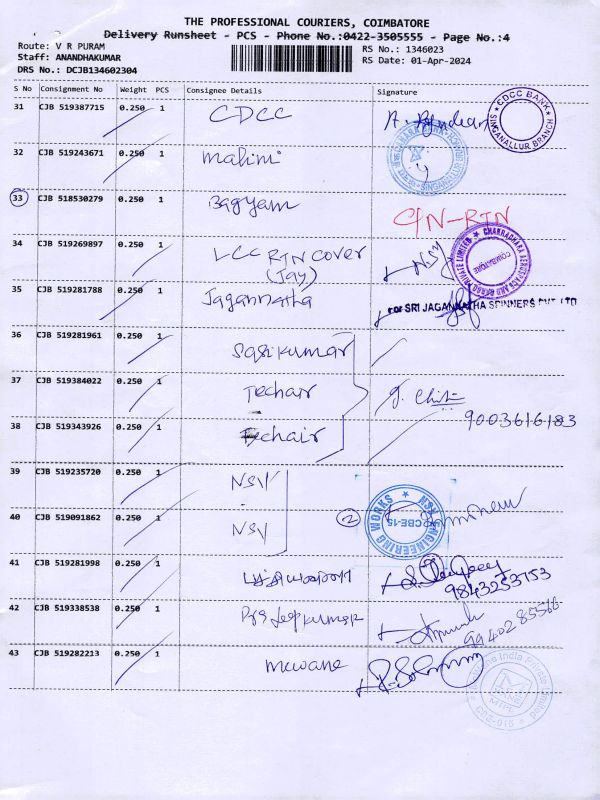 THE PROFESSIONAL COURIERS, COIMBATORE
Delivery Runsheet - PCS - Phone No.:0422-3505555 - Page No.:4
Route: V R PURAM
Staff: ANANDHAKUMAR
DRS No.: DCJB134602304
RS No.: 1346023
RS Date: 01-Apr-2024
S No Consignment No Weight PCS Consignee Details Signature
31 CJB 519387715 0.250 1 CDCC
CDCC BANK SINGANALLUR BRANCH
32 CJB 519243671 0.250 1 mahini
33 CJB 518530279 0.250 1 Bagyam C/N-RTN
34 CJB 519269897 0.250 1 LCC RTN Cover
(Jay)
CHAKRADHARA AEROSPACE AND CARGO PRIVATE LIMITED COIMBATORE
35 CJB 519281788 0.250 1 Jagannatha
For SRI JAGANNATHA SPINNERS PVT LTD
36 CJB 519281961 0.250 1 Sasikumar
37 CJB 519384022 0.250 1 Techair
9003616183
38 CJB 519343926 0.250 1 Techair
39 CJB 519235720 0.250 1 NSY
40 CJB 519091862 0.250 1 NSY 2
MSN ENGINEERING WORKS CBE-15
41 CJB 519281998 0.250 1
9843253153
42 CJB 519338538 0.250 1 Pradeepkumar
43 CJB 519282213 0.250 1 mewane